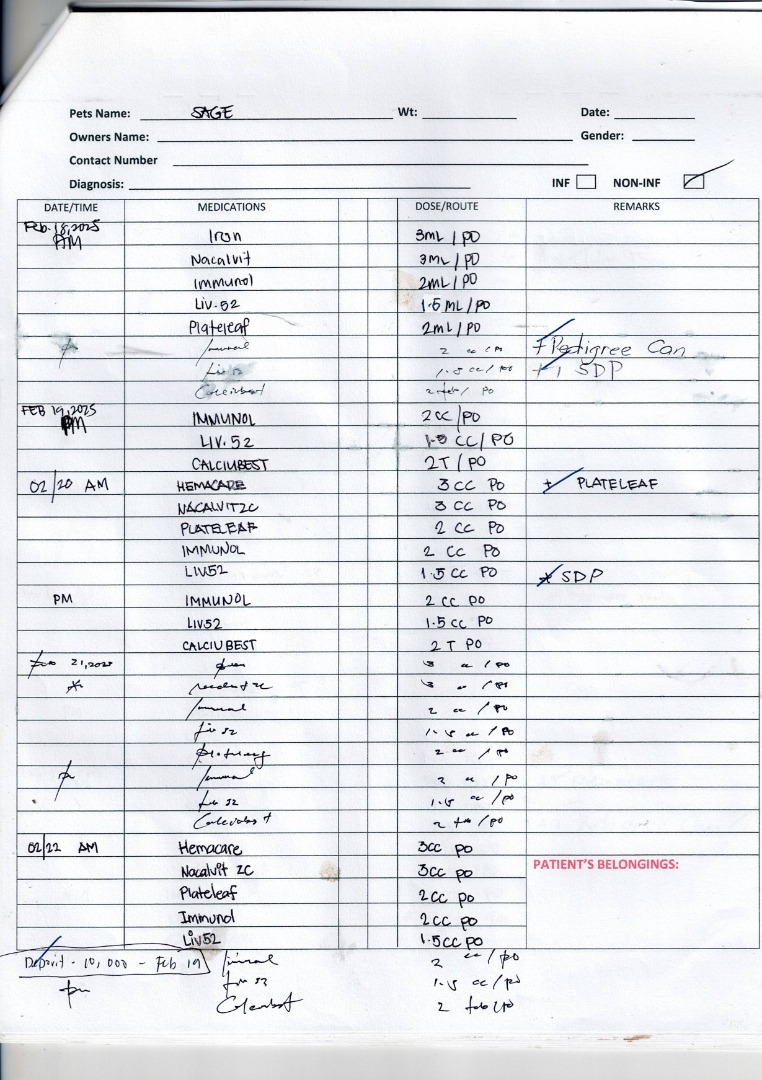 Pets Name: SAGE Wt: Date:
Owners Name: Gender:
Contact Number
Diagnosis: INF NON-INF
DATE/TIME MEDICATIONS DOSE/ROUTE REMARKS
Feb. 18, 2025
AM Iron 3ML / PO
Nacalvit 3ML / PO
Immunol 2ML / PO
Liv.52 1.5 ML / PO
Plateleaf 2ML / PO
2 cc / PO + Pedigree Can
Liv 52 1.5 cc / PO + 1 SDP
2 tab / PO
FEB 19, 2025
PM IMMUNOL 2 CC / PO
LIV. 52 1.5 CC / PO
CALCIUBEST 2T / PO
02/20 AM HEMACARE 3 CC PO + PLATELEAF
NACALVIT ZC 3 CC PO
PLATELEAF 2 CC PO
IMMUNOL 2 CC PO
LIV52 1.5 CC PO * SDP
PM IMMUNOL 2 CC PO
LIV52 1.5 CC PO
CALCIUBEST 2 T PO
21, 2025 3 cc / PO
3 cc / PO
2 cc / PO
Liv 52 1.5 cc / PO
2 cc / PO
2 cc / PO
Liv 52 1.5 cc / PO
2 tab / PO
02/22 AM Hemacare 3CC PO
Nacalvit ZC 3CC PO
Plateleaf 2CC PO
Immunol 2CC PO
Liv52 1.5CC PO
PATIENT'S BELONGINGS:
Deposit - 10,000 - Feb 19 2 cc / PO
Liv 52 1.5 cc / PO
2 tab / PO